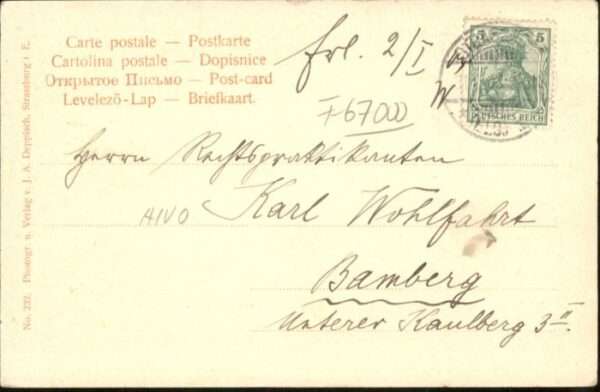 Carte postale — Postkarte
Cartolina postale — Dopisnice
Открытое Письмо — Post-card
Levelező-Lap — Briefkaart.
frl. 2/I
W
5 5
DEUTSCHES REICH
+67000
Herrn Rechtspraktikanten
AIVO
Karl Wohlfahrt
Bamberg
Unterer Kaulberg 3II.
No. 232. Photogr. u. Verlag v. J. A. Deppisch, Strassburg i. E.